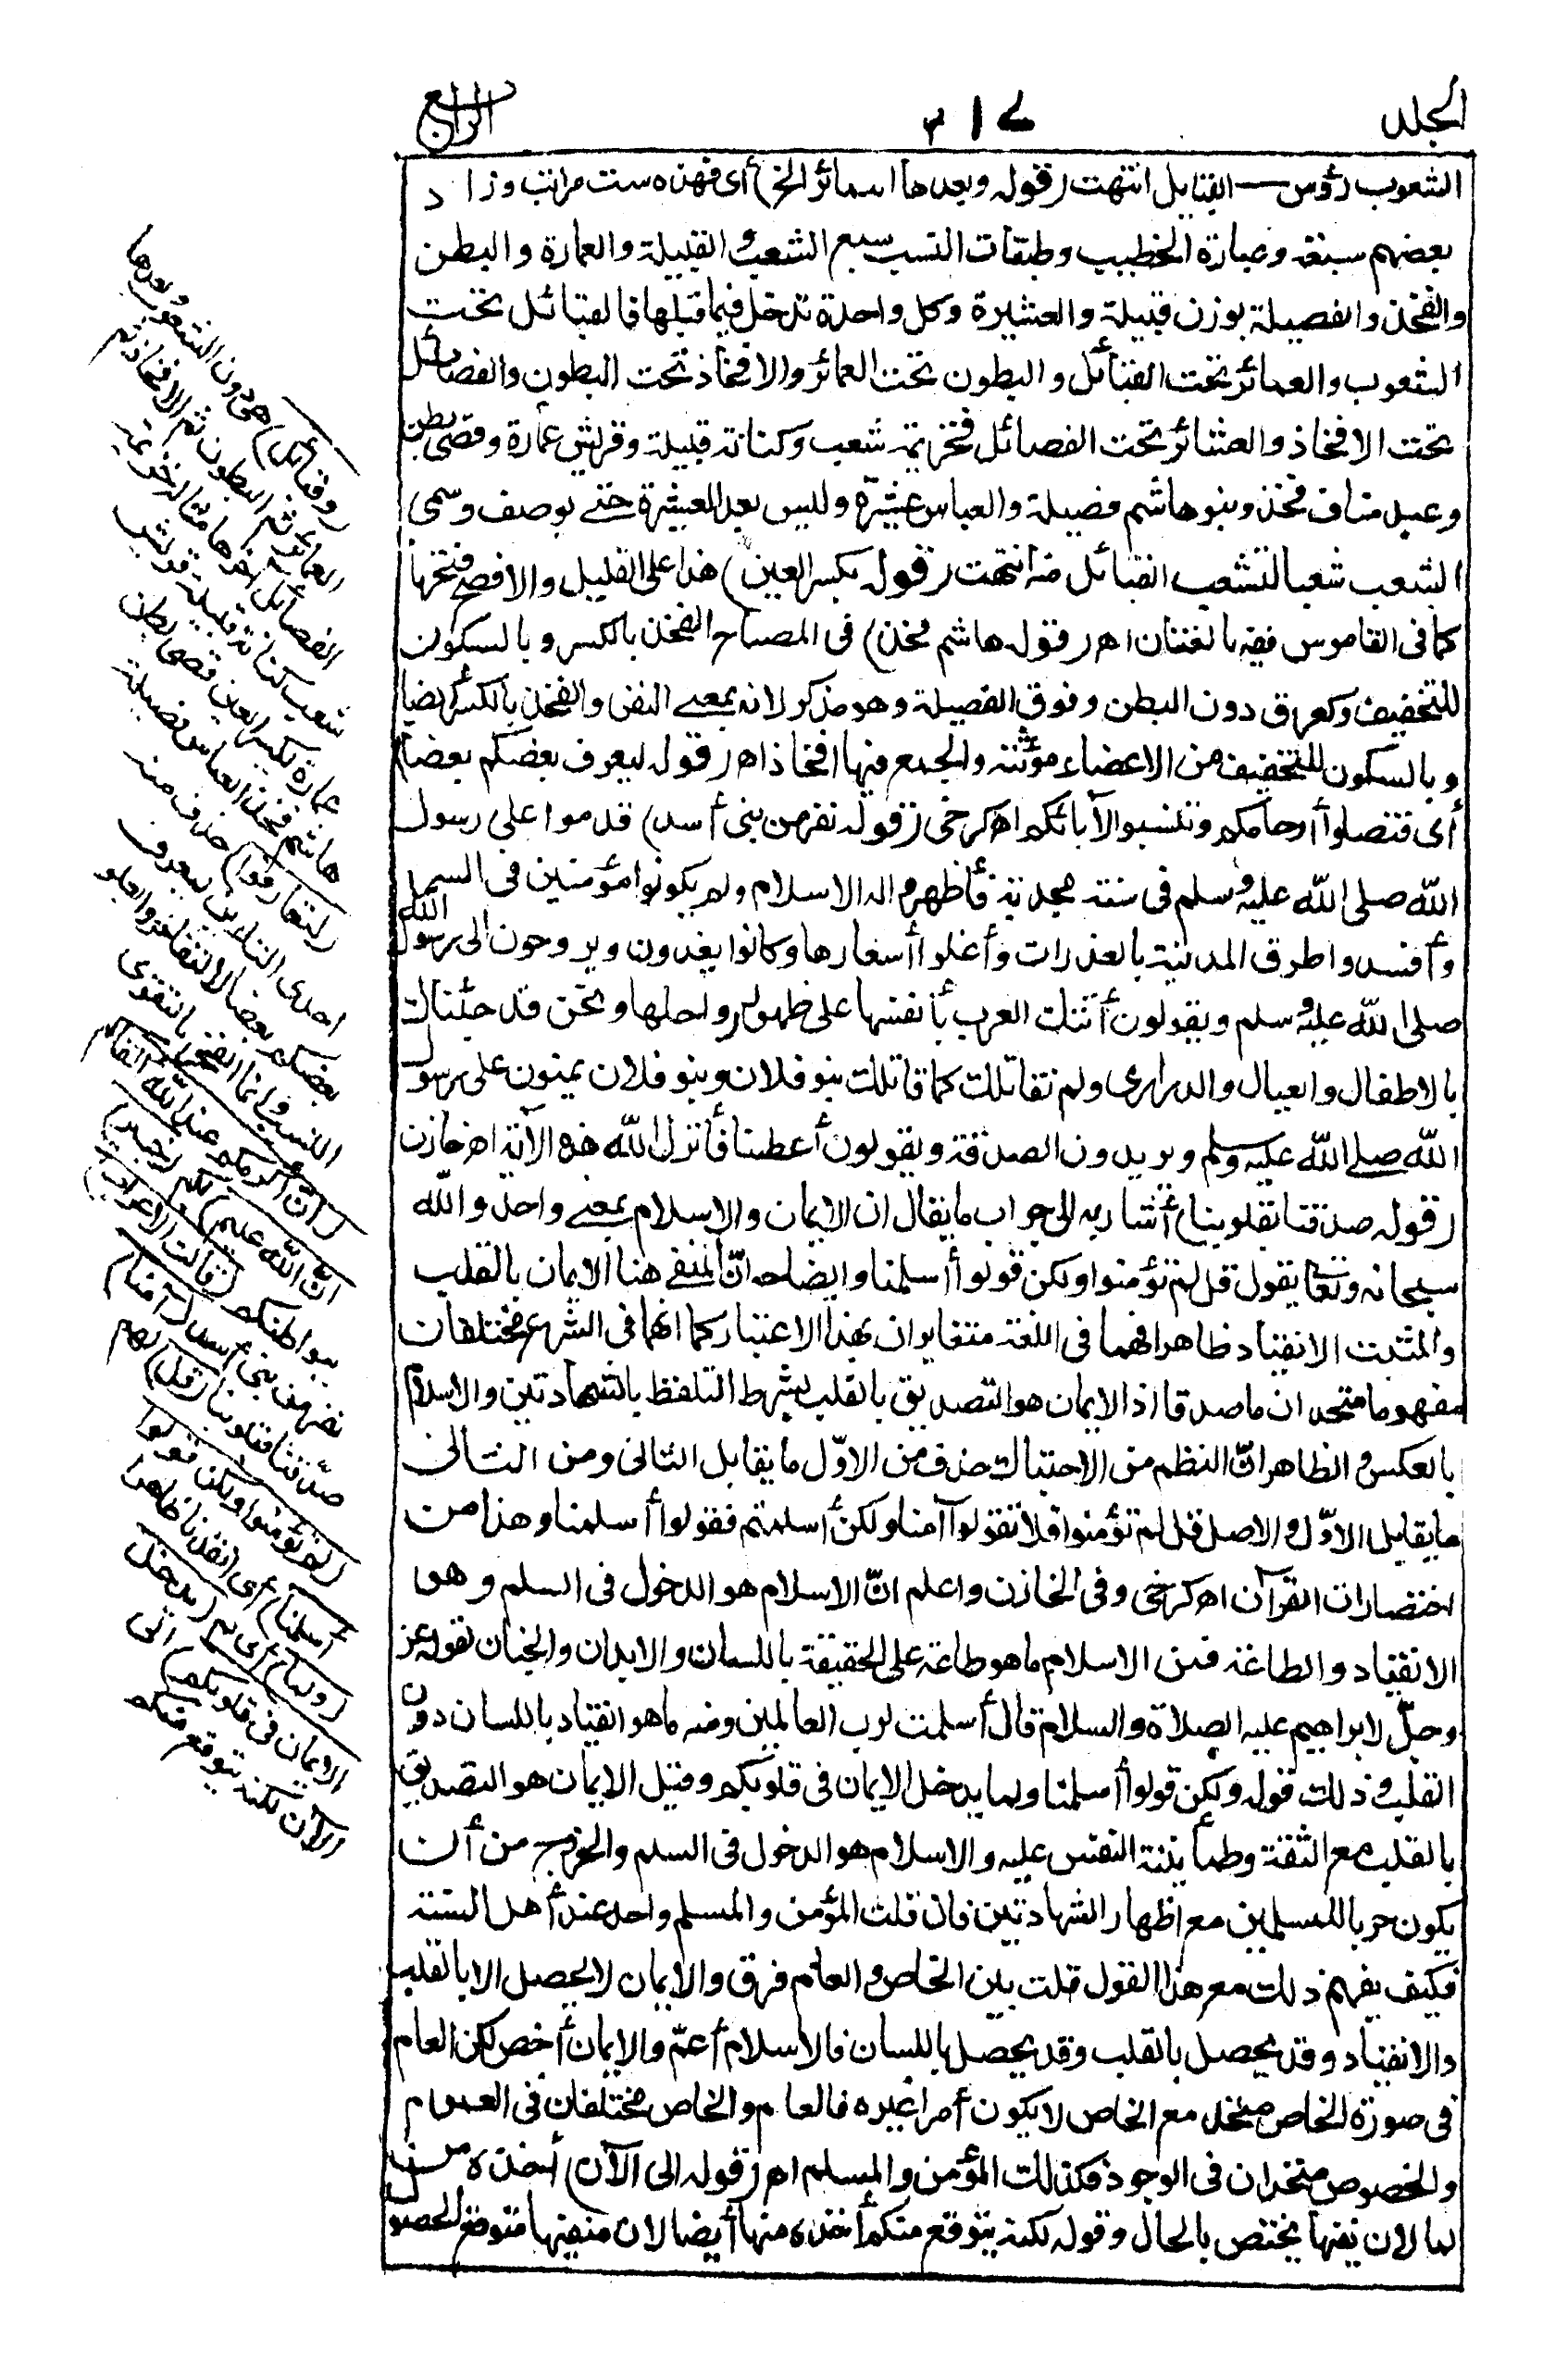 الجلد
٣١٧
الرابع
الشعوب رؤس القبايل انتهت (قوله وبعدها العمائر الخ) أى فهذه ست مراتب وزاد
بعضهم سبعة وعبارة الخطيب وطبقات النسب سبع الشعب والقبيلة والعمارة والبطن
والفخذ والفصيلة بوزن قبيلة والعشيرة وكل واحدة تدخل فيما قبلها فالقبائل تحت
الشعوب والعمائر تحت القبائل والبطون تحت العمائر والافخاذ تحت البطون والفصائل
تحت الافخاذ والعشائر تحت الفصائل فخزيمة شعب وكنانة قبيلة وقريش عمارة وقصى بطن
وعبد مناف فخذ وبنو هاشم فصيلة والعباس عشيرة وليس بعد العشيرة حتے يوصف وسمى
الشعب شعبا لتشعب القبائل منه انتهت (قوله بكسر العين) هذا على القليل والافصح فتحها
كما فى القاموس ففيه بالغتان اھ (قوله هاشم فخذ) فى المصباح الفخذ بالكسر وبالسكون
للتخفيف وكعرق دون البطن وفوق الفصيلة وهو مذكر لانه بمعنے النفر والفخذ بالكسر أيضا
وبالسكون للتخفيف من الاعضاء مؤنثة والجمع فيها افخاذ اھ (قوله ليعرف بعضكم بعضا)
أى فتصلوا أرحامكم وتنتسبوا لآبائكم اھ كرخى (قوله نفر من بنى أسد) قدموا على رسول
اللّٰه صلى اللّٰه عليه وسلم فى سنة مجدبة فأظهروا له الاسلام ولم يكونوا مؤمنين فى السر
وأفسدوا طرق المدينة بالعذرات وأغلوا أسعارها وكانوا يغدون ويروحون الى رسول اللّٰه
صلى اللّٰه عليه وسلم ويقولون أتتك العرب بأنفسها على ظهور رواحلها ونحن قد جئناك
بالاطفال والعيال والذرارى ولم نقاتلك كما قاتلك بنو فلان وبنو فلان يمنون على رسول
اللّٰه صلے اللّٰه عليه وسلم ويريدون الصدقة ويقولون أعطنا فأنزل اللّٰه هذه الآية اھ خازن
(قوله صدقنا بقلوبنا) أشار به الى جواب ما يقال ان الايمان والاسلام بمعنے واحد واللّٰه
سبحانه وتعا يقول قل لم تؤمنوا ولكن قولوا أسلمنا وايضاحه انّ المنفے هنا الايمان بالقلب
والمثبت الانقياد ظاهرا فهما فى اللغة متغايران بهذا الاعتبار كما انهما فى الشرع مختلفان
مفهوما متحدان ما صدقا اذ الايمان هو التصديق بالقلب بشرط التلفظ بالشهادتين والاسلام
بالعكس والظاهر انّ النظم من الاحتباك حذف من الاوّل ما يقابل الثانى ومن الثانى
ما يقابل الاوّل والاصل قل لم تؤمنوا فلا تقولوا آمنا ولكن أسلمتم فقولوا أسلمنا وهذا من
اختصارات القرآن اھ كرخى وفى الخازن واعلم انّ الاسلام هو الدخول فى السلم وهو
الانقياد والطاعة فمن الاسلام ما هو طاعة على الحقيقة باللسان والابدان والجنان لقوله عز
وجلّ لابراهيم عليه الصلاة والسلام قال أسلمت لرب العالمين ومنه ما هو انقياد باللسان دون
القلب وذلك قوله ولكن قولوا أسلمنا ولما يدخل الايمان فى قلوبكم وقيل الايمان هو التصديق
بالقلب مع الثقة وطمأنينة النفس عليه والاسلام هو الدخول فى السلم والخروج من أن
يكون حربا للمسلمين مع اظهار الشهادتين فان قلت المؤمن والمسلم واحد عند أهل السنة
فكيف يفهم ذلك مع هذا القول قلت بين الخاص والعام فرق والايمان لا يحصل الا بالقلب
والانقياد وقد يحصل بالقلب وقد يحصل باللسان فالاسلام أعمّ والايمان أخص لكن العام
فى صورة الخاص متحد مع الخاص لا يكون أمرا غيره فالعام والخاص مختلفان فى العموم
والخصوص متحدان فى الوجود فكذلك المؤمن والمسلم اھ (قوله الى الآن) أخذه من
لما لان نفيها يختص بالحال وقوله لكنه يتوقع منكم أخذه منها أيضا لان منفيها متوقع الحصول
(وقبائل) هى دون الشعوب وبعدها
العمائر ثم البطون ثم الافخاذ ثم
الفصائل اخرها مثاله خزيمة
شعب كنانة قبيلة قريش
عمارة بكسر العين قصى بطن
هاشم فخذ العباس فصيلة
(لتعارفوا) حذف منه
احدى التاءين ليعرف
بعضكم بعضا لا لتفاخروا بعلو
النسب وانما الفخر بالتقوى
(انّ اكرمكم عند اللّٰه اتقاكم
انّ اللّٰه عليم) بكم (خبير)
ببواطنكم (قالت الاعراب)
نفر من بنى أسد (آمنا)
صدّقنا بقلوبنا (قل) لهم
(لم تؤمنوا ولكن قولوا
أسلمنا) أى انقدنا ظاهرا
(ولما) أى لم (يدخل
الايمان فى قلوبكم) الى
الآن لكنه يتوقع منكم